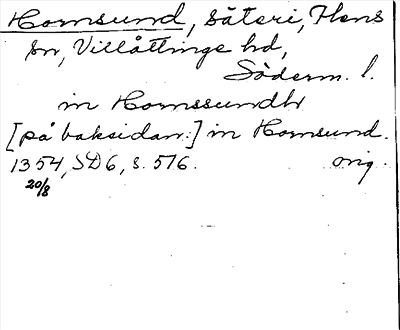 Hornsund, säteri, Flens
sn, Villåttinge hd,
Söderm. l.
in Hornssundh
[på baksidan:] in Hornsund.
1354, SD6, s. 576. orig.
20/8